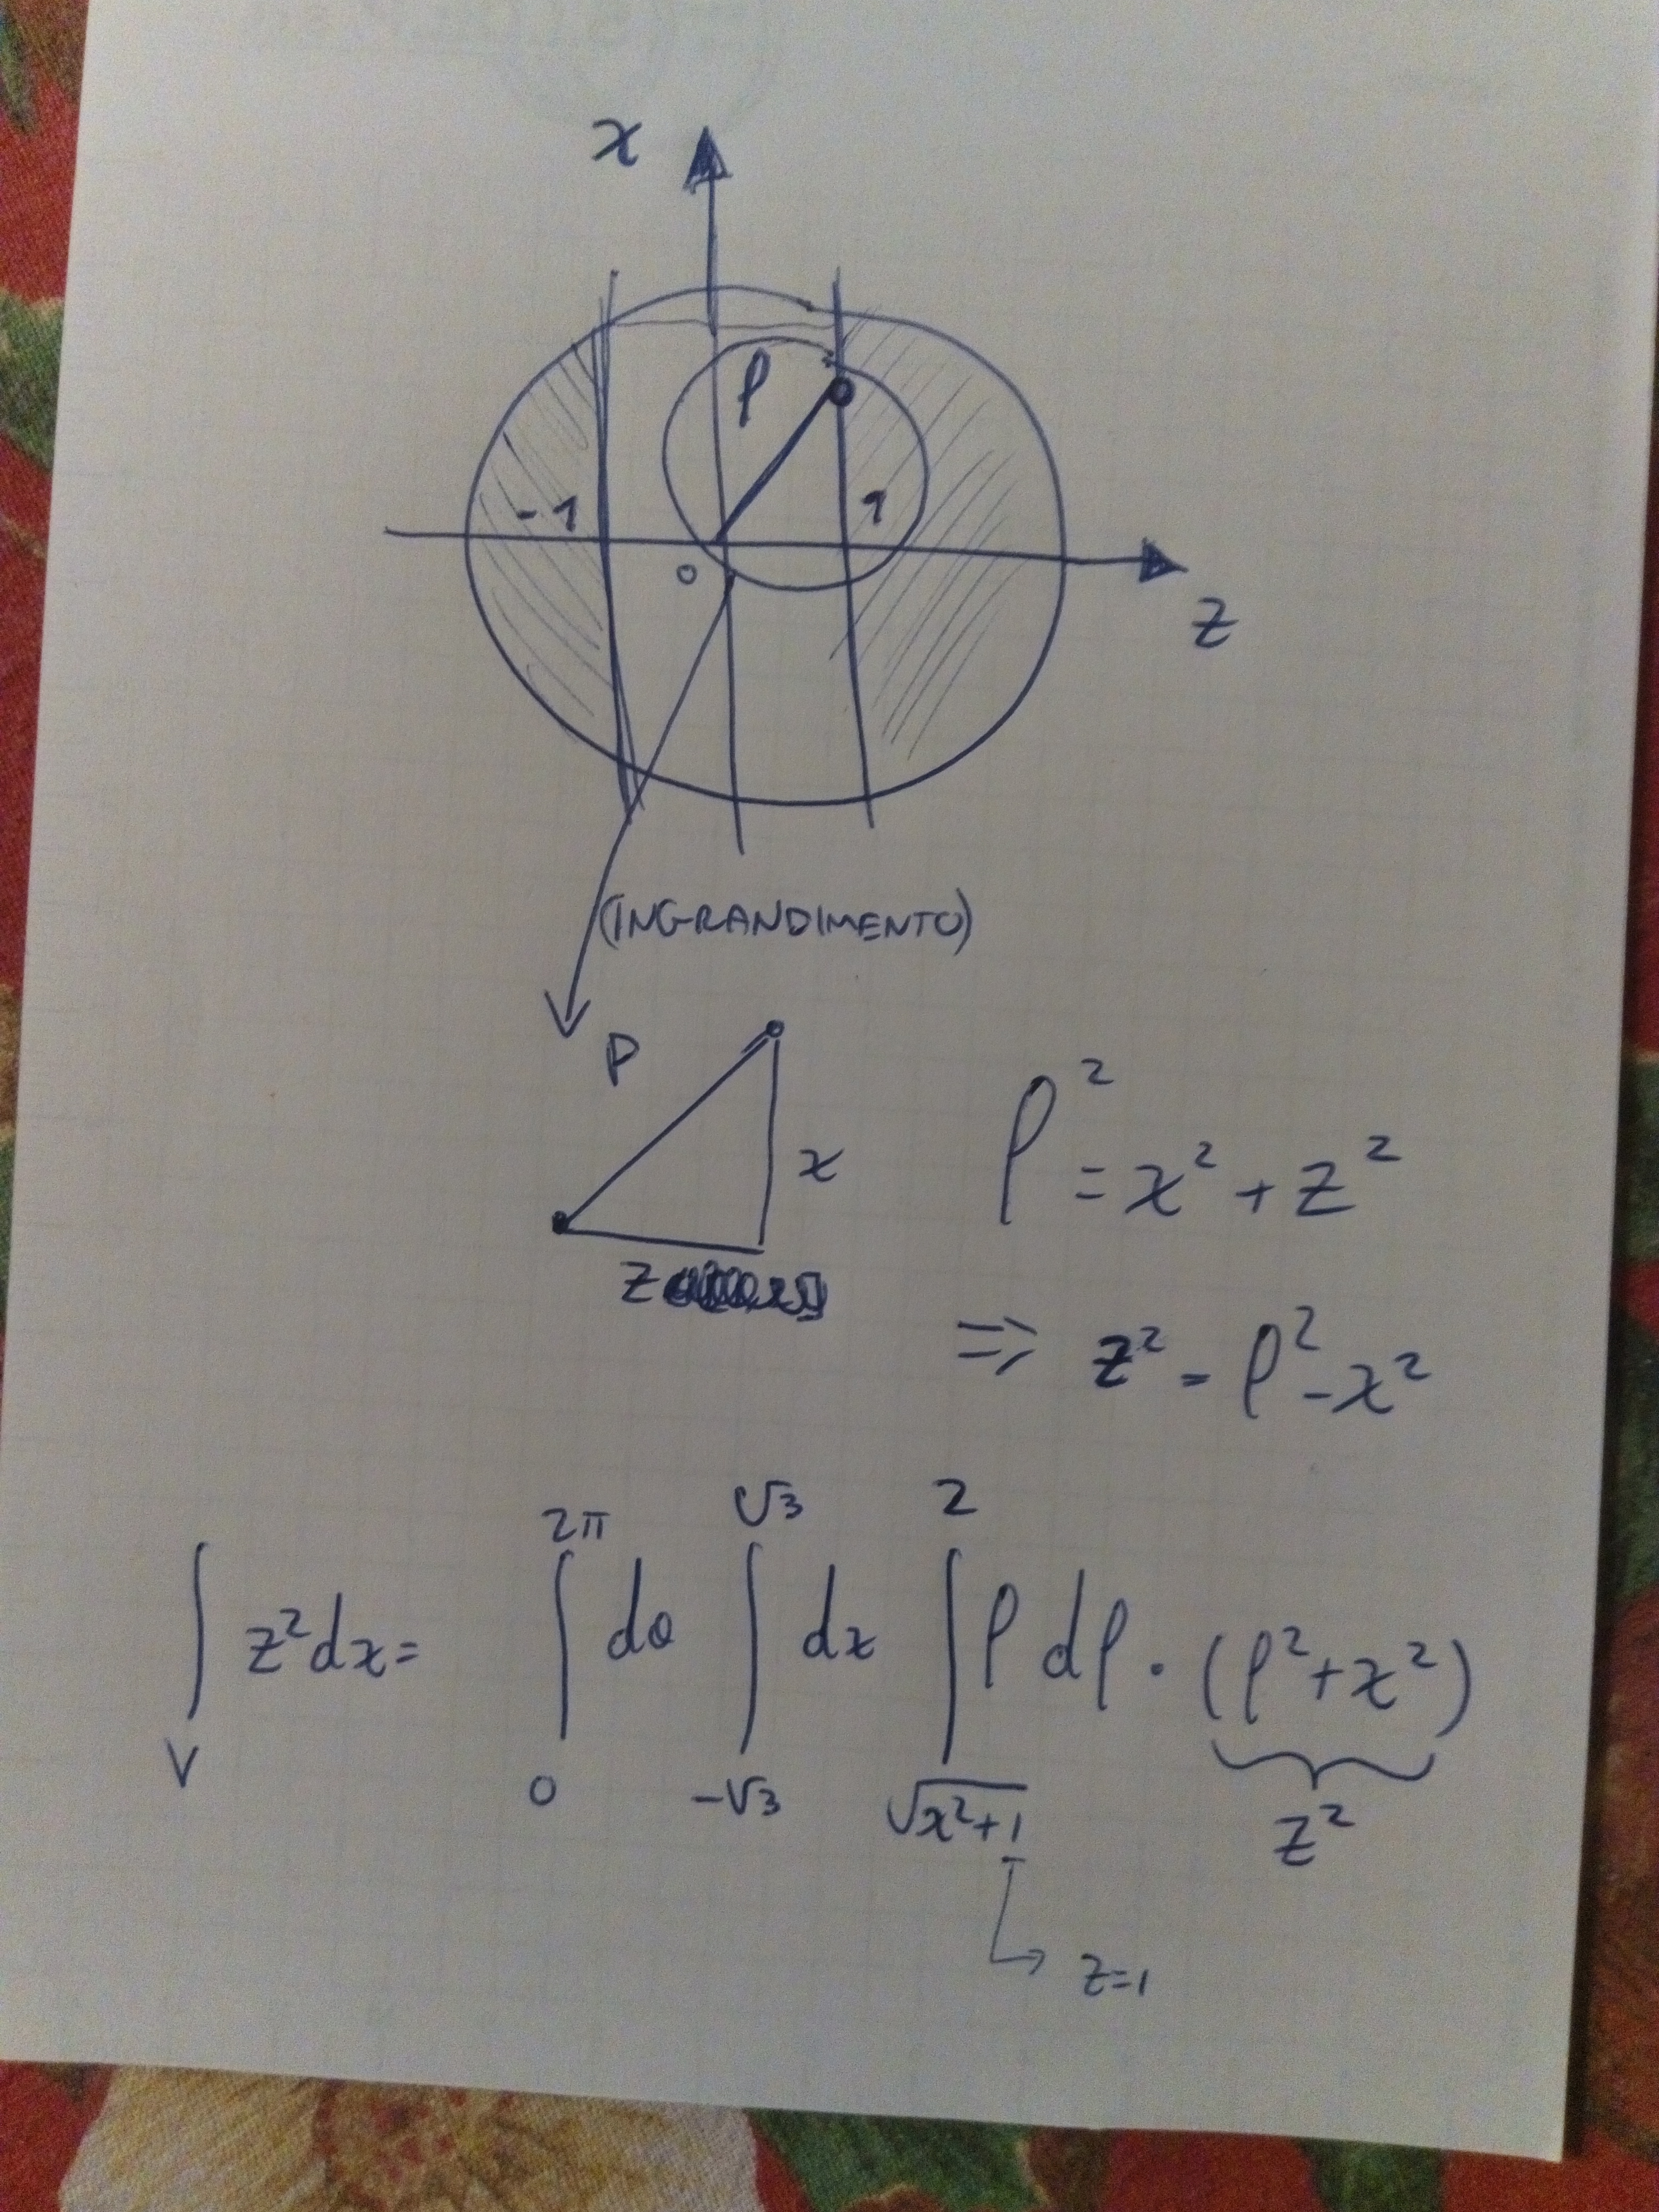 x
ρ
-1
1
0
z
(INGRANDIMENTO)
ρ
x
z
ρ² = x² + z²
⇒ z² = ρ² - x²
∫_V z² dx = ∫_0^{2π} dθ ∫_{-√3}^{√3} dx ∫_{√(x²+1)}^{2} ρ dρ · (ρ² + x²)
z²
z=1